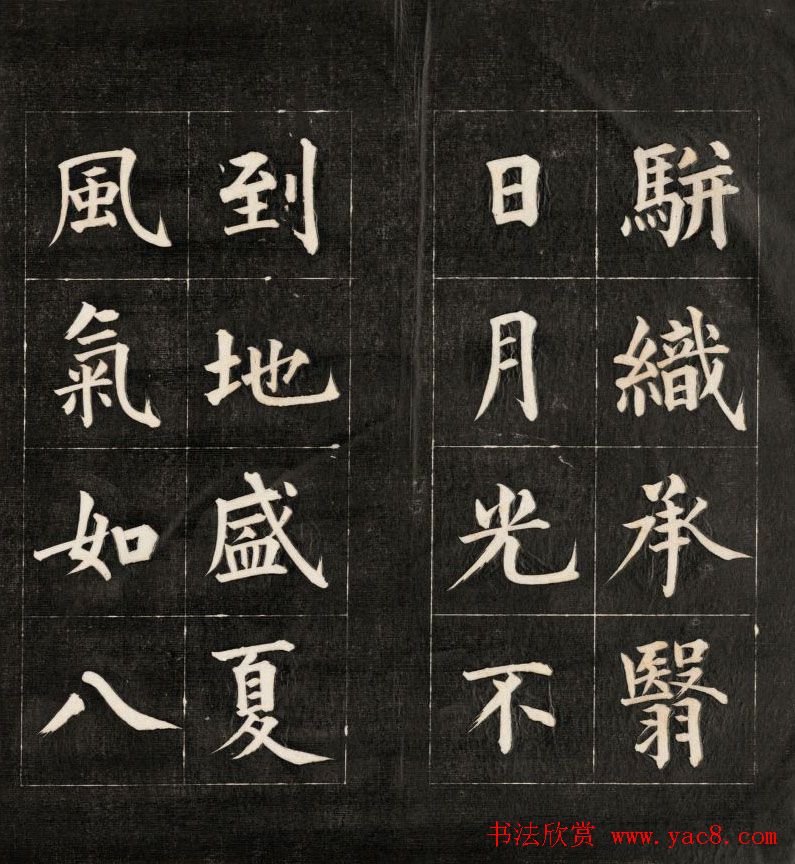 駢織承翳
日月光不
到地盛夏
風氣如八
书法欣赏 www.yac8.com